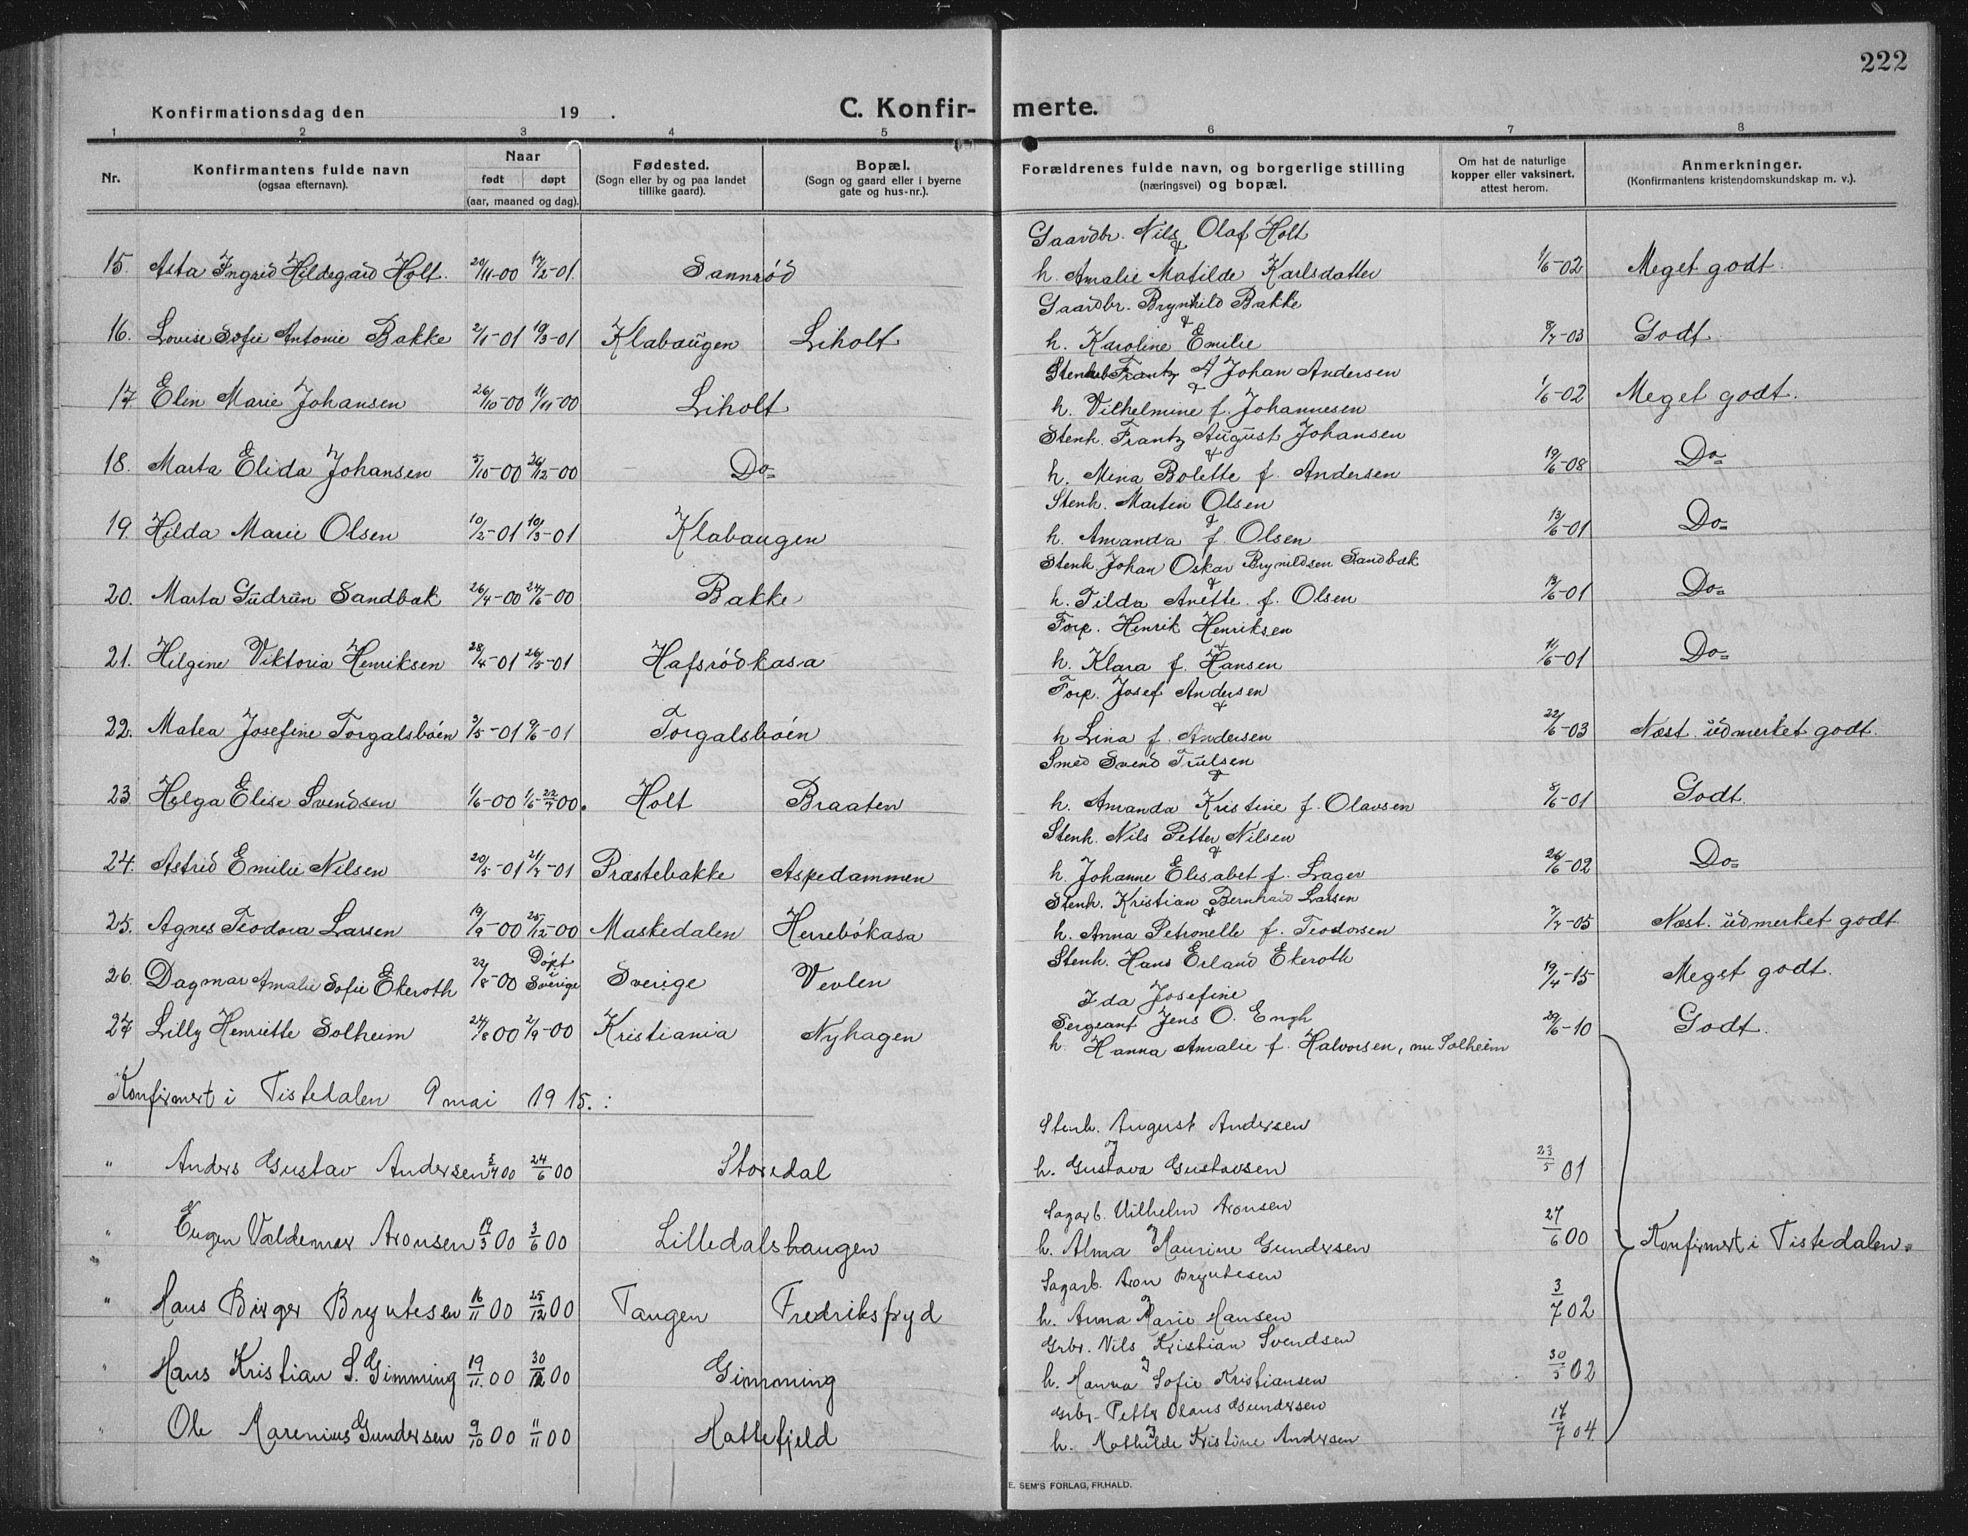 222
Konfirmationsdag den 19 .
C. Konfir- merte.
1 2 3 4 5 6 7 8
Nr. Konfirmantens fulde navn (ogsaa efternavn). Naar født døpt (aar, maaned og dag). Fødested. (Sogn eller by og paa landet tillike gaard). Bopæl. (Sogn og gaard eller i byerne gate og hus-nr.). Forældrenes fulde navn, og borgerlige stilling (næringsvei) og bopæl. Om hat de naturlige kopper eller vaksinert. attest herom. Anmerkninger. (Konfirmantens kristendomskundskap m. v.).
Gaardbr. Nils Olaf Holt
&
15. Asta Ingrid Hildegard Holt. 20/11-00 17/2-01. Sannrød h. Amalie Matilde Karlsdatter 1/6-02 Meget godt.
Gaardbr. Brynhild Bakke
&
16. Lovise Sofie Antonie Bakke 2/1-01 19/3-01 Klabaugen Liholt h. Karoline Emilie 8/7-03 Godt.
Johan Andersen
&
17 Elin Marie Johansen 26/10-00 11/11-00 Liholt h. Vilhelmine f. Johannesen 1/6-02 Meget godt.
Stenh. Frantz August Johansen
&
18. Marta Elida Johansen 5/10-00 26/12-00 Do= h. Mina Bolette f. Andersen 19/6-08 Do=
Stenh. Martin Olsen
&
19. Hilda Marie Olsen 10/2-01 10/3-01 Klabaugen h. Amanda f. Olsen 13/6-01 Do=
Stenh. Johan Oskar Brynildsen Sandbæk
&
20. Marta Gudrun Sandbæk 26/4-00 24/6-00 Bakke h. Tilda Anette f. Olsen /6-01 Do=
Forp. Henrik Henriksen
&
21. Hilgine Viktoria Henriksen 28/4-01 26/5-01 Hafsrødkasa h. Klara f. Hansen 11/6-01 Do=
Forp. Josef Andersen
&
22. Matea Josefine Torgalsbøen 3/5-01 9/6-01 Torgalsbøen h Lina f. Andersen 22/6-03 Næst. udmerket godt.
Smed Svend Trulsen
&
23 Helga Elise Svendsen 1/6-00 1/6-22/7 00. Holt Braaten h. Amanda Kristine f. Olavsen 8/6-01 Godt.
Stenh. Nils Petter Nilsen
&
24. Astrid Emilie Nilsen 20/5-01 21/7-01 Præstebakke Aspedammen h. Johanne Elisabet f. Lager 26/6-02 Do=
Stenh. Kristian Bernhard Larsen
&
25. Agnes Teodora Larsen 19/9-00 25/12-00 Maskedalen Herrebøkasa h. Anna Petronelle f. Teodorsen 7/7-05 Næst. udmerket godt
Stenh. Hans Erland Ekeroth
26. Dagmar Amalie Sofie Ekeroth 22/8-00 Døpt i Sverige Sverige Vevlen Ida Josefine 19/4-15 Meget godt.
Sergeant Jens O. Engh
27 Lilly Henriette Solheim 24/8 00 2/9-00 Kristiania Nyhagen h. Hanna Amalie f. Halvorsen, nu Solheim 20/6-10 Godt.
Konfirmert i Tistedalen 9 mai 1915. :
Stenh. August Andersen
og
" Anders Gustav Andersen 5/4 00 24/6 00 Storedal h. Gustava Gustavsen 23/5 01
Sagarb. Vilhelm Aronsen
og
" Eugen Valdemar Aronsen 19/3 00 3/6 00 Lilledalshaugen h. Alma Maurine Gundersen 27/6 00 Konfirmert i Tistedalen.
Sagarb. Aron Bryntesen
og
" Hans Birger Bryntesen 16/11 00 25/12 00 Tangen Fredriksfryd h. Anna Marie Hansen 3/7 02
Grbr. Nils Kristian Svendsen
og
" Hans Kristian S. Gimming 19/11. 00 30/12 00 Gimming h. Hanna Sofie Kristiansen 30/5 02
Grbr. Petter Olaus Gundersen
og
" Ole Marenius Gundersen 9/10 00 11/11 00 Hattefjeld h. Mathilde Kristine Andersen 17/7 04
E. SEM'S FORLAG, FR.HALD.